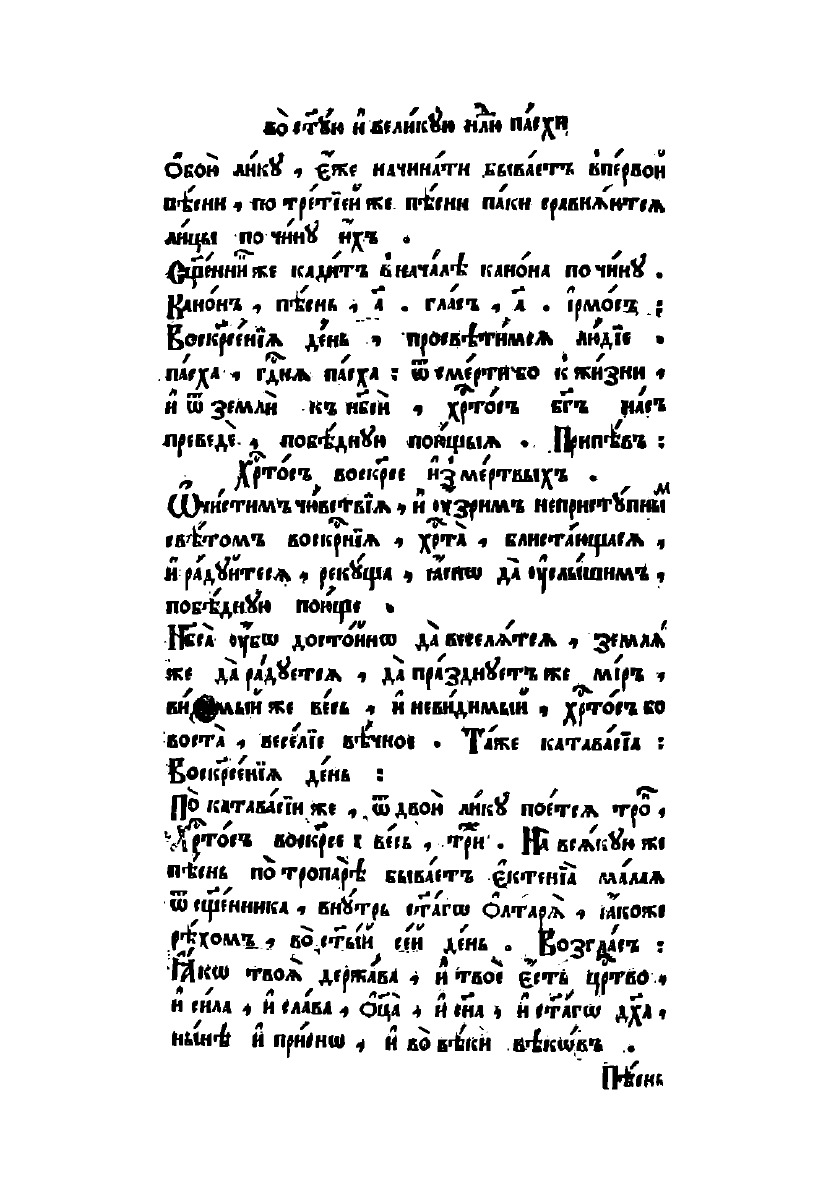 во ст҃ꙋ́ю и҆ вели́кꙋю нл҃ю па́схи
Ѻ҆бои̑ ли́кꙋ , є҆́же начина́ти быва́етъ в̾пе́рвой
пѣ́сни , по тре́тїей же пѣ́сни па́ки сравнѧ́ютсѧ
ли́цы по чи́нꙋ и҆́хъ .
Сщ҃е́нникъ же кади́тъ в̾нача́лѣ кано́на по чи́нꙋ .
Кано́нъ , пѣ́снь , а҃ . гла́съ , а҃ . і҆рмо́съ :
Воскр҃се́нїѧ де́нь , просвѣти́мсѧ лю́дїе .
па́сха , гд҃нѧ па́сха : ѿ сме́рти бо к̾ жи́зни ,
и҆ ѿ землѝ къ нб҃сѝ , хр҇то́съ бг҃ъ на́съ
преведѐ , побѣ́днꙋю пою́щыѧ . Припѣ́въ :
Хр҇то́съ воскр҃се и҆з̾ ме́ртвыхъ .
Ѡ҆чи́стимъ чꙋ́вствїѧ , и҆ ᲂу҆́зримъ непристꙋ́пны́м
свѣ́томъ воскр҃нїѧ , хр҇та̀ , блиста́ющасѧ ,
и҆ ра́дꙋйтесѧ , рекꙋ́ща , ꙗ҆́снѡ да ᲂу҆слы́шимъ ,
побѣ́днꙋю пою́ще .
Нб҃са̀ ᲂу҆́бѡ досто́йнѡ да веселѧ́тсѧ , землѧ́
же да ра́дꙋетсѧ , да пра́зднꙋетъ же мі́ръ ,
ви́димый же ве́сь , и҆ неви́димый , хр҇то́съ бо
воста̀ , весе́лїе вѣ́чное . Та́же катава́сїа :
Воскр҃се́нїѧ де́нь :
По катава́сїи же , ѿ двои̑ ли́кꙋ пое́тсѧ тро҇ ,
Хр҇то́съ воскр҃се : ве́сь , три́ж . На всѧ́кꙋю же
пѣ́снь по тропарѣ́ быва́етъ є҆ктенїа̀ ма́лаѧ
ѿ сщ҃е́нника , внꙋ́трь ст҃а́гѡ ѻ҆лтарѧ̀ , ꙗ҆́коже
рѣ́хомъ , во ст҃ы́й се́й де́нь . Возгла́съ :
Ꙗ҆́кѡ твоѧ̀ держа́ва , и҆ твоѐ є҆́сть цр҇тво ,
и҆ си́ла , и҆ сла́ва , ѻ҆ц҃а̀ , и҆ сн҃а , и҆ ст҃а́гѡ дх҃а ,
ны́нѣ и҆ при́снѡ , и҆ во вѣ́ки вѣкѡ́въ .
Пѣ́снь